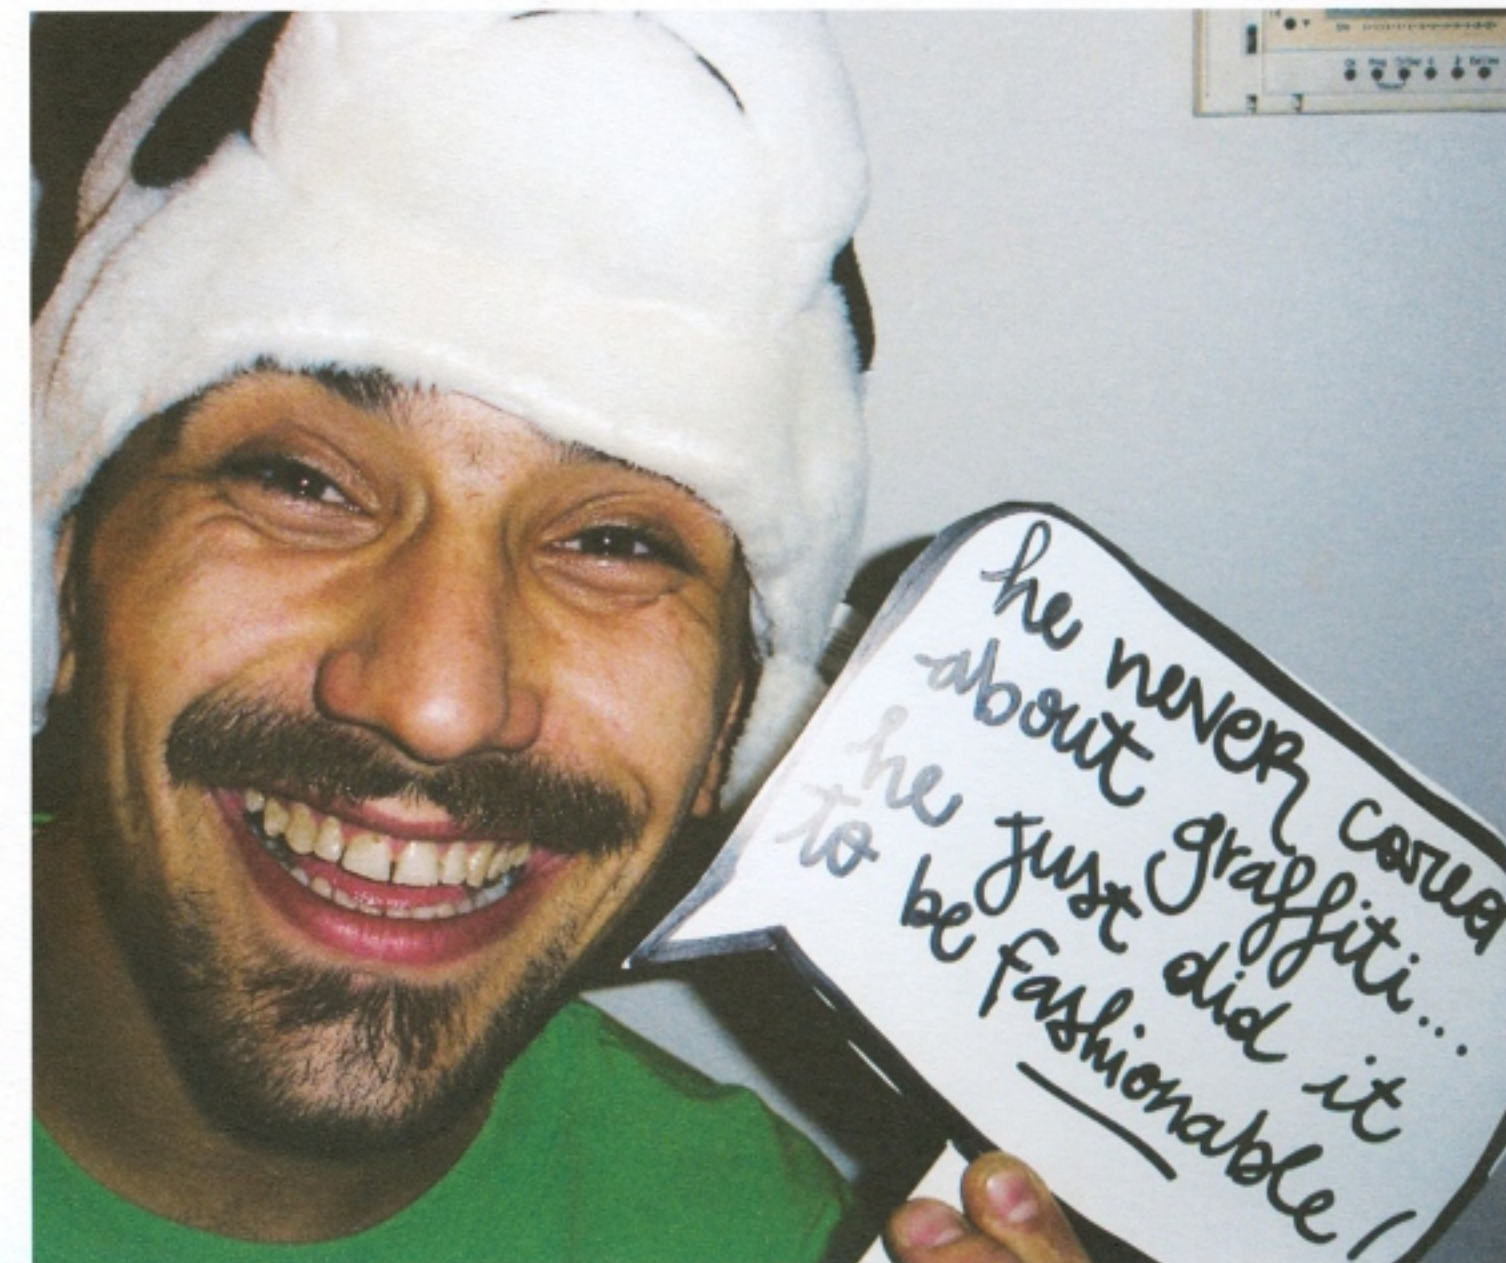 he never cared
about graffiti...
he just did it
to be fashionable!